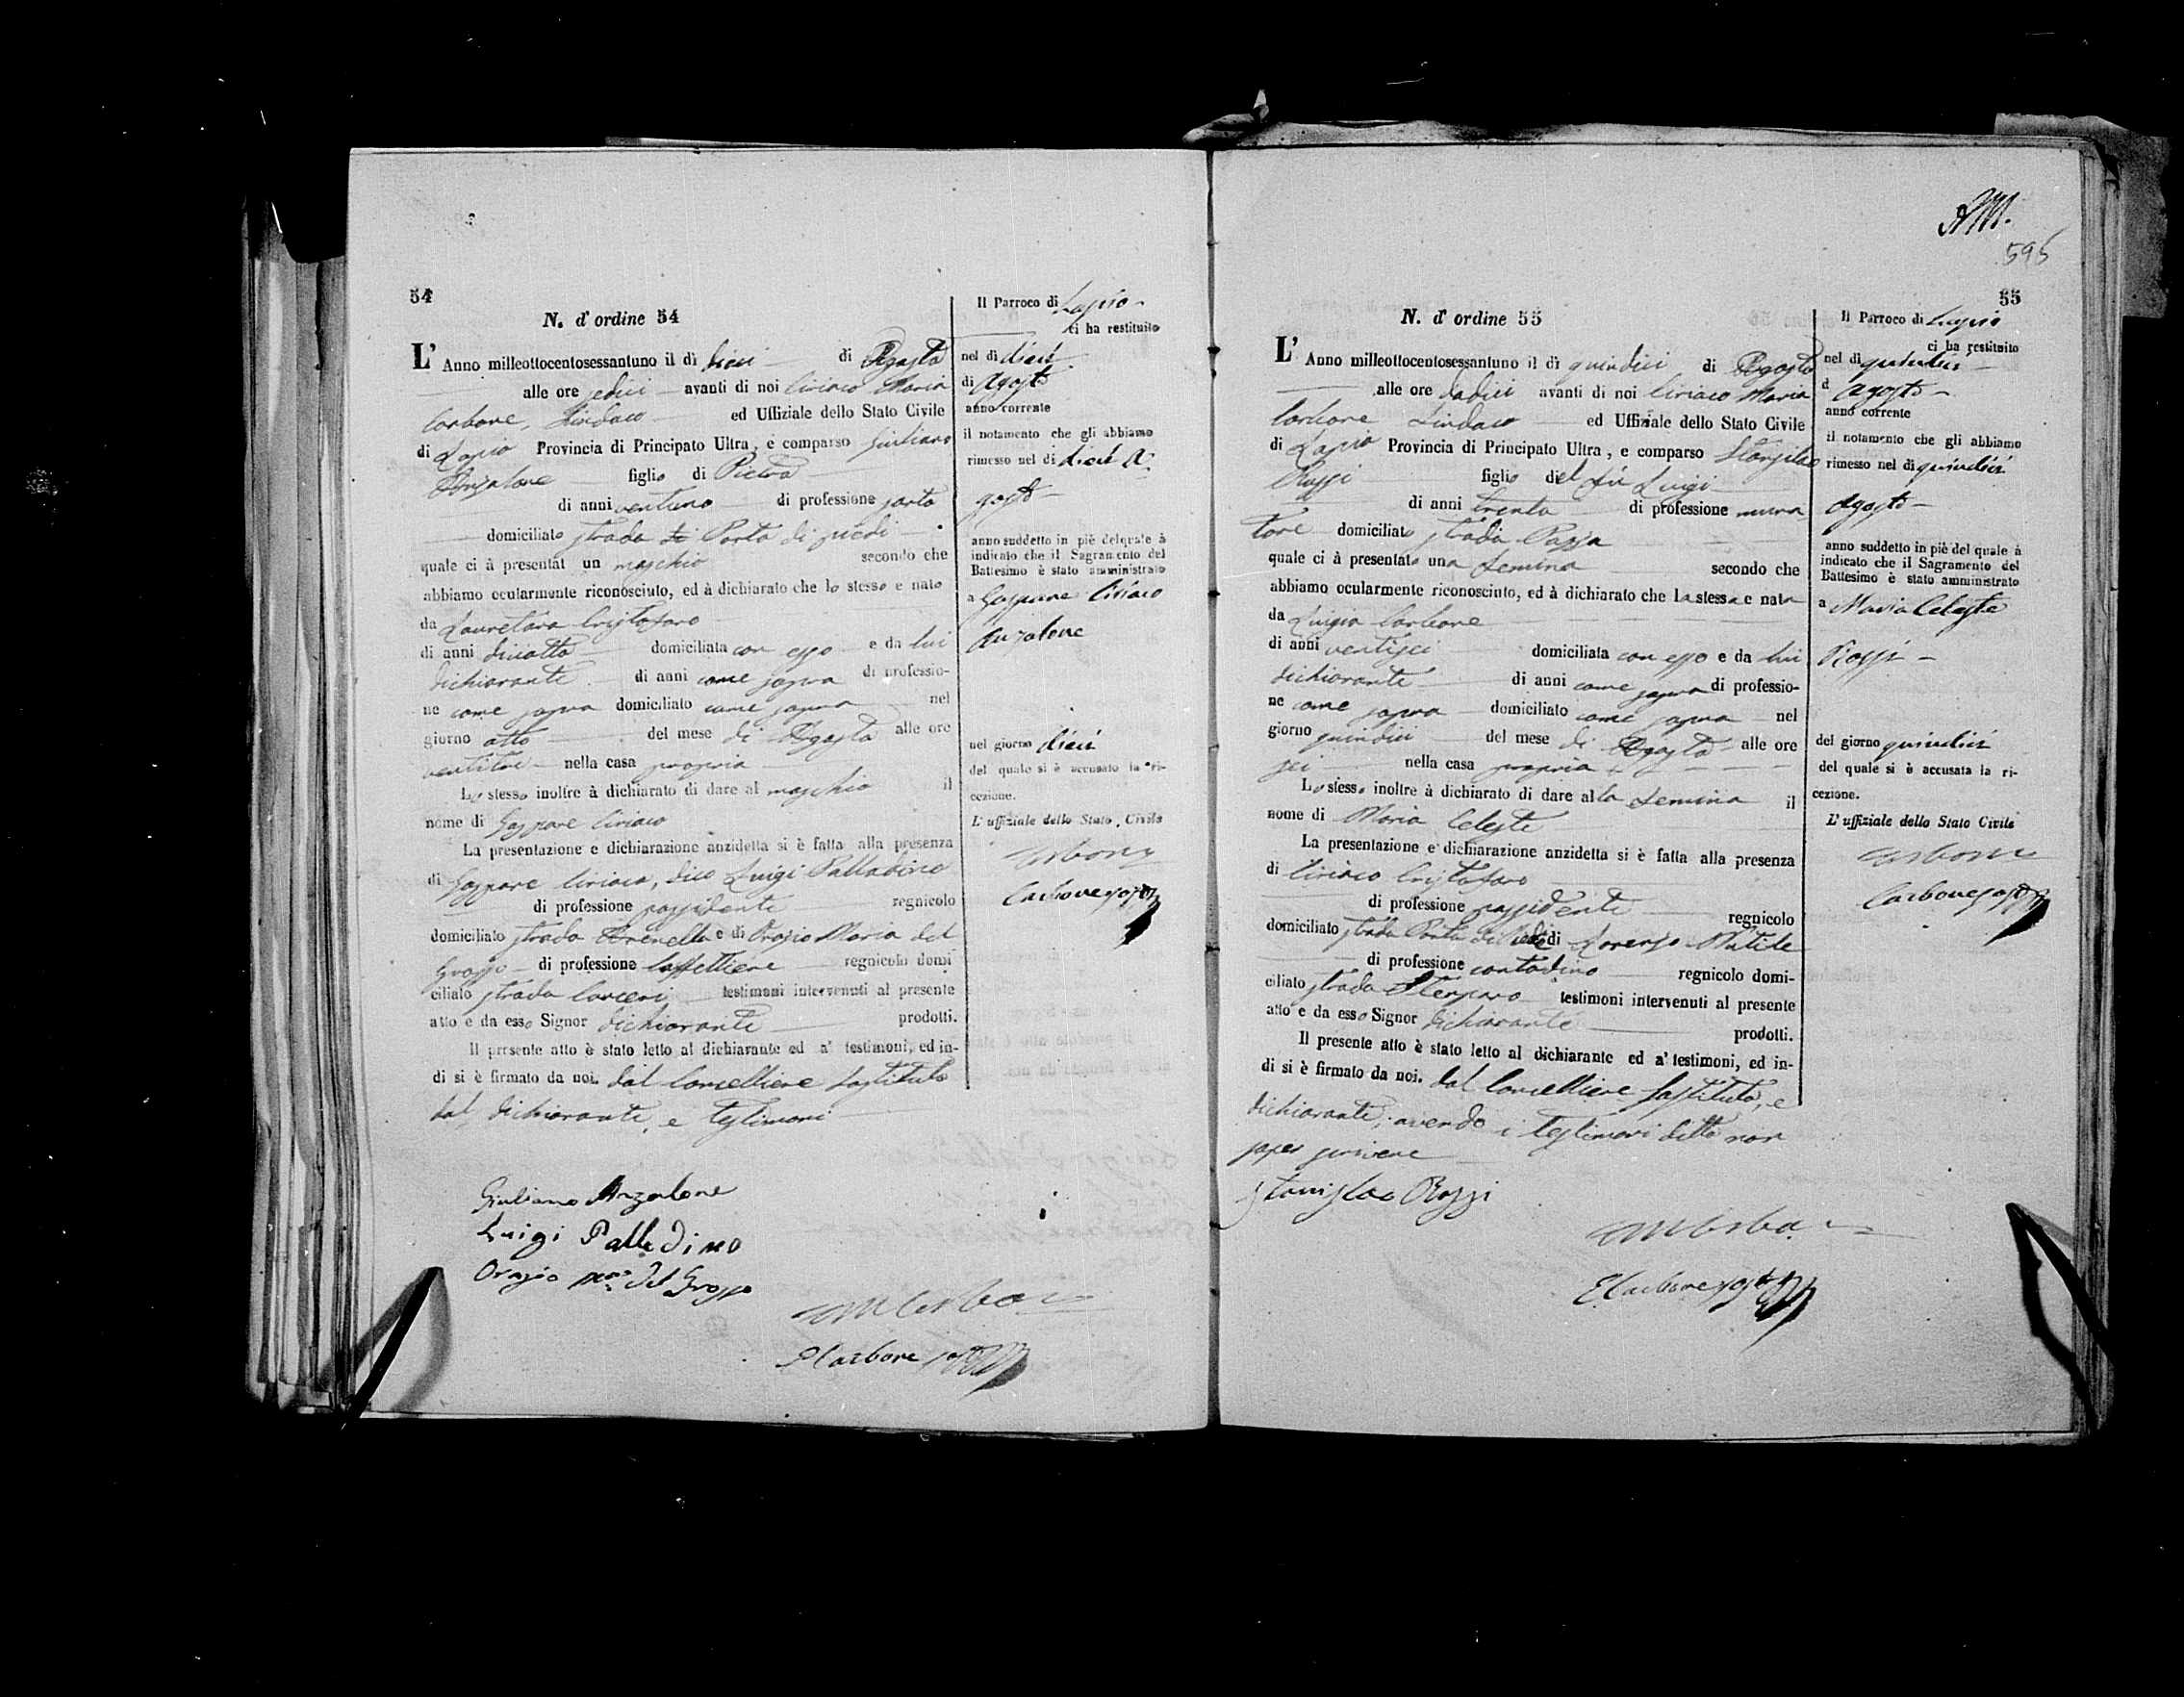 54
N. d' ordine 54
L' Anno milleottocentosessantuno il dì dieci di Agosto
alle ore sedici avanti di noi Ciriaco Maria
Carbone, Sindaco ed Uffiziale dello Stato Civile
di Lapio Provincia di Principato Ultra, è comparso Giuliano
Anzalone figlio di Pietro
di anni ventuno di professione sarto
domiciliato strada di Porta di piedi
quale ci à presentat un maschio secondo che
abbiamo ocularmente riconosciuto, ed à dichiarato che lo stesso e nato
da Lauretana Cristofaro
di anni diciotto domiciliata con esso e da lui
dichiarante di anni come sopra di professio-
ne come sopra domiciliato come sopra nel
giorno otto del mese di Agosto alle ore
ventitre nella casa propria
Lo stesso inoltre à dichiarato di dare al maschio il
nome di Gaspare Ciriaco
La presentazione e dichiarazione anzidetta si è fatta alla presenza
di Gaspare Ciriaco, dico Luigi Palladino
di professione possidente regnicolo
domiciliato strada Arenella e di Orazio Maria del
Grosso di professione Caffettiere regnicolo domi
ciliato strada Carceri testimoni intervenuti al presente
atto e da esso Signor dichiarante prodotti.
Il presente atto è stato letto al dichiarante ed a' testimoni, ed in-
di si è firmato da noi. dal Cancelliere Sostituto
dal dichiarante, e testimoni
Giuliano Anzalone
Luigi Palladino
Orazio Mª del Grosso
Carbone
Il Parroco di Lapio
ci ha restituito
nel dì dieci
di Agosto
anno corrente
il notamento che gli abbiamo
rimesso nel di dieci A
gosto
anno suddetto in piè delquale à
indicato che il Sagramento del
Battesimo è stato amministrato
a Gaspare Ciriaco
Anzalone
nel giorno dieci
del quale si è accusato la ri-
cezione.
L' uffiziale dello Stato Civile
Carbone
Carbone
AM.
595
55
N. d' ordine 55
L' Anno milleottocentosessantuno il dì quindici di Agosto
alle ore dodici avanti di noi Ciriaco Maria
Carbone Sindaco ed Uffiziale dello Stato Civile
di Lapio Provincia di Principato Ultra, e comparso Stanislao
Rossi figlio del fù Luigi
di anni trenta di professione mura
tore domiciliato strada
quale ci à presentato una femina secondo che
abbiamo ocularmente riconosciuto, ed à dichiarato che la stessa e nata
da Luigia Carbone
di anni ventisei domiciliata con esso e da lui
dichiarante di anni come sopra di professio-
ne come sopra domiciliato come sopra nel
giorno quindici del mese di Agosto alle ore
sei nella casa propria
Lo stesso inoltre à dichiarato di dare alla femina il
nome di Maria Celeste
La presentazione e dichiarazione anzidetta si è fatta alla presenza
di Ciriaco Cristofaro
di professione possidente regnicolo
domiciliato strada Porta di Piedi e di Lorenzo
di professione contadino regnicolo domi-
ciliato strada testimoni intervenuti al presente
atto e da esso Signor dichiarante prodotti.
Il presente atto è stato letto al dichiarante ed a' testimoni, ed in-
di si è firmato da noi. dal Cancelliere Sostituto, e
dichiarante; avendo i testimoni detto non
saper scrivere
Stanislao Rossi
E Carbone
Il Parroco di Lapio
ci ha restituito
nel dì quindici
d Agosto
anno corrente
il notamento che gli abbiamo
rimesso nel dì quindici
Agosto
anno suddetto in piè del quale à
indicato che il Sagramento del
Battesimo è stato amministrato
a Maria Celeste
Rossi
del giorno quindici
del quale si è accusata la ri-
cezione.
L' uffiziale dello Stato Civile
Carbone
Carbone